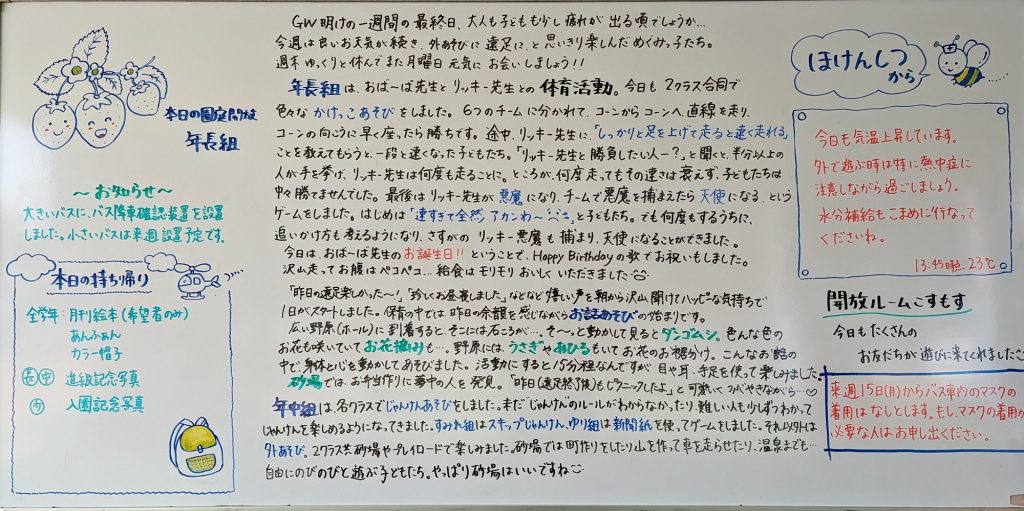 本日の園庭開放
年長組
～お知らせ～
大きいバスに、バス降車確認装置を設置
しました。小さいバスは来週設置予定です。
本日の持ち帰り
全学年：月刊絵本(希望者のみ)
あんふぁん
カラー帽子
長 中 進級記念写真
少 入園記念写真
GW明けの一週間の最終日、大人も子どもも少し疲れが出る頃でしょうか…
今週は良いお天気が続き、外あそびに遠足に、と思いきり楽しんだめぐみっ子たち。
週末ゆっくりと休んでまた月曜日元気にお会いしましょう!!
年長組は、おばーば先生とリッキー先生との体育活動。今日も2クラス合同で
色々なかけっこあそびをしました。6つのチームに分かれて、コーンからコーンへ直線を走り、
コーンの向こうに早く座ったら勝ちです。途中、リッキー先生に「しっかりと足を上げて走ると速く走れる」
ことを教えてもらうと、一段と速くなった子どもたち。「リッキー先生と勝負したい人ー？」と聞くと、半分以上の
人が手を挙げ、リッキー先生は何度も走ることに。ところが、何度走ってもその速さは衰えず、子どもたちは
中々勝てませんでした。最後はリッキー先生が悪魔になり、チームで悪魔を捕まえたら天使になる、という
ゲームをしました。はじめは「速すぎて全然アカンわ～」と子どもたち。でも何度もするうちに、
追いかけ方も考えるようになり、さすがのリッキー悪魔も捕まり、天使になることができました。
今日は、おばーば先生のお誕生日!!ということで、Happy Birthdayの歌でお祝いもしました。
沢山走ってお腹はペコペコ…給食はモリモリおいしくいただきました
「昨日の遠足楽しかった～！」「珍しくお昼寝しました」などなど嬉しい声を朝から沢山聞けてハッピーな気持ちで
1日がスタートしました。保育の中では昨日の余韻を感じながらお話あそびの始まりです。
広い野原(ホール)に到着すると、そこには石ころが…。そ～っと動かして見るとダンゴムシ。色んな色の
お花も咲いていてお花摘みも…。野原にはうさぎやあひるもいてお花のお裾分け。こんなお話の
中で、身体と心を動かしてあそびました。活動にすると15分程なんですが目や耳、手足を使って楽しみました。
砂場では、お弁当作りに夢中の人を発見。「昨日(遠足終了後)もピクニックしたよ」と可愛くつぶやきながら…♡
年中組は、各クラスでじゃんけんあそびをしました。まだじゃんけんのルールがわからなかったり、難しい人も少しずつわかって
じゃんけんを楽しめるようになってきました。すみれ組はスキップじゃんけん、ゆり組は新聞紙を使ってゲームをしました。それ以外は
外あそび。2クラス共砂場やプレイロードで楽しみました。砂場では町作りをしたり山を作って車を走らせたり、温泉までも…
自由にのびのびと遊ぶ子どもたち。やっぱり砂場はいいですね
ほけんしつ
から
今日も気温上昇しています。
外で遊ぶ時は特に熱中症に
注意しながら過ごしましょう。
水分補給もこまめに行なって
くださいね。
13:45時点、23℃
開放ルームこすもす
今日もたくさんの
お友だちが遊びに来てくれました
来週15日(月)からバス車内のマスクの
着用はなしとします。もし、マスクの着用が
必要な人はお申し出ください。